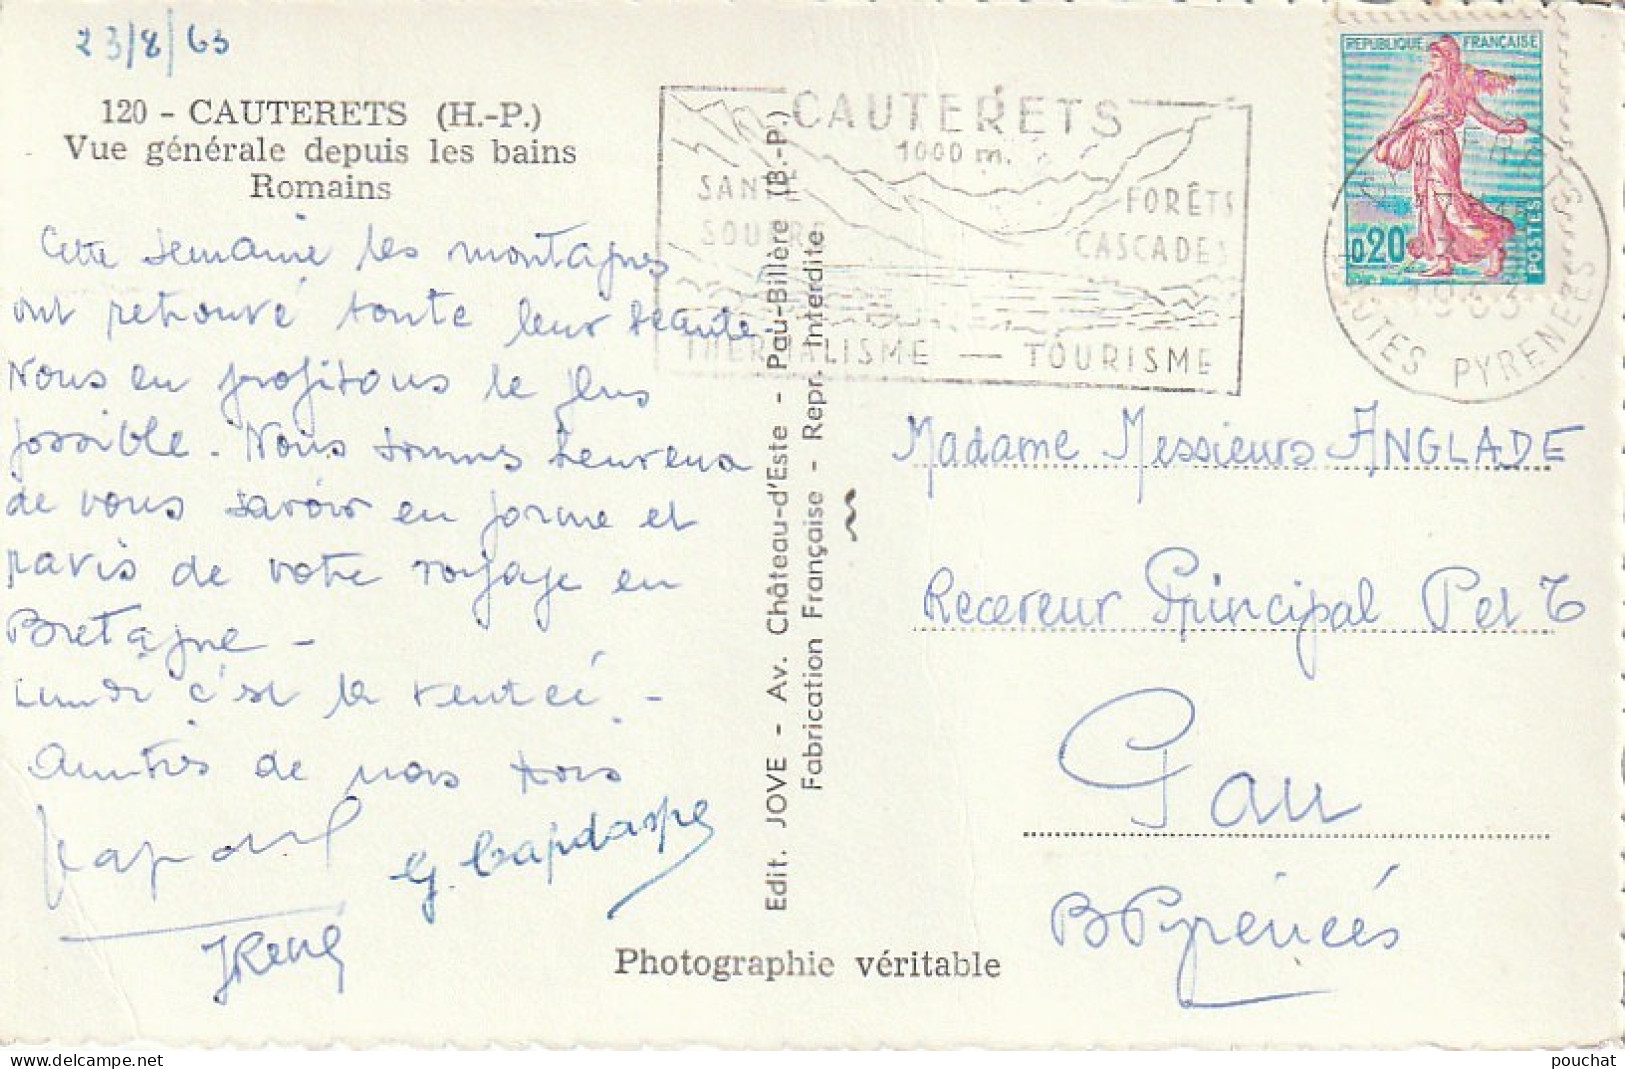 23/8/63
120 - CAUTERETS (H.-P.)
Vue générale depuis les bains
Romains
Cette semaine les montagnes
ont retrouvé toute leur beauté.
Nous en profitons le plus
possible. Nous sommes heureux
de vous savoir en forme et
ravis de votre voyage en
Bretagne -
Lundi c'est la rentrée. -
Amitiés de nous trois
G. Capdaspe
René
Edit. JOVE - Av. Château-d'Este - Pau-Billère (B.-P.)
Fabrication Française - Repr. Interdite
Photographie véritable
CAUTERETS
1000 m.
SANTÉ
FORÊTS
CASCADES
THERMALISME — TOURISME
REPUBLIQUE FRANÇAISE
0,20
POSTES
1963
HAUTES PYRENEES
Madame Messieurs ANGLADE
Receveur Principal P et T
Gan
B Pyrénées
pouchat